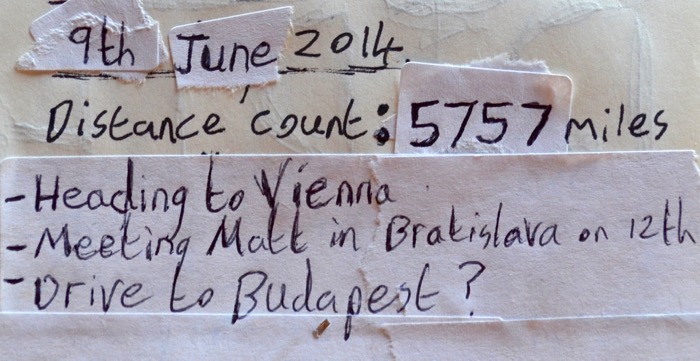 9th June 2014.
Distance count: 5757 miles
- Heading to Vienna
- Meeting Matt in Bratislava on 12th
- Drive to Budapest?